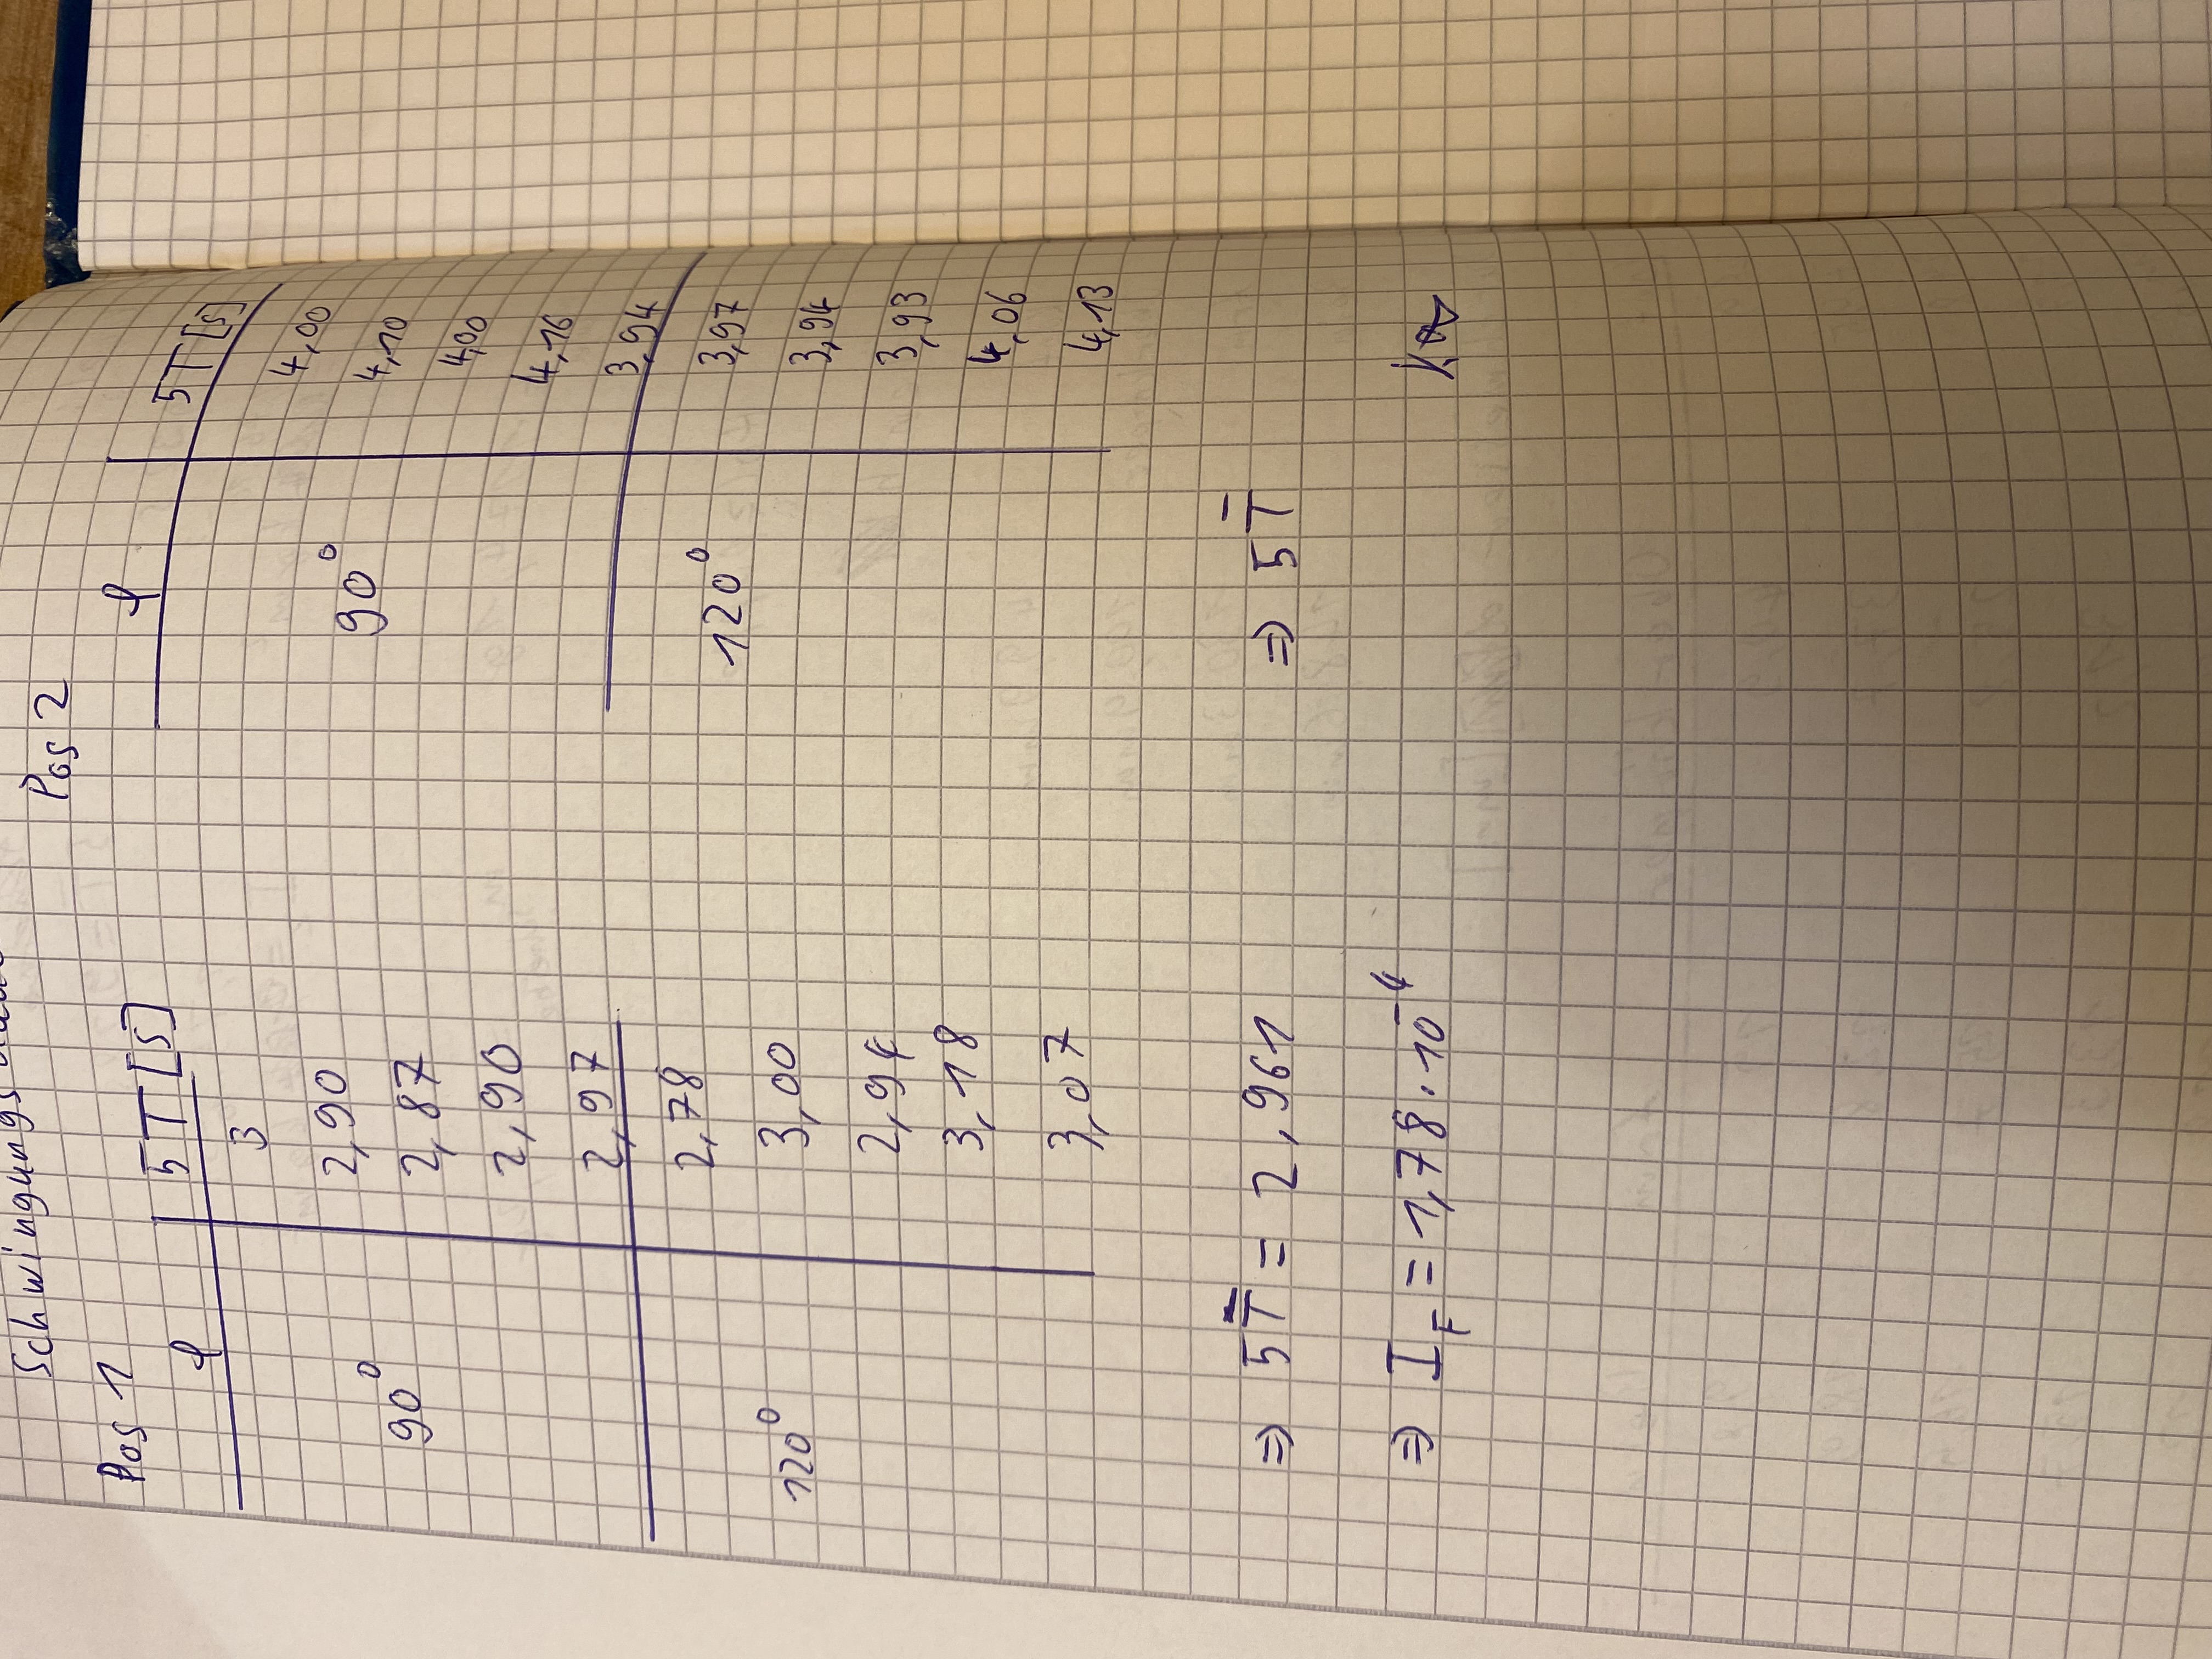 Schwingungsdau
Pos 1
φ 5T [s]
3
2,90
90° 2,87
2,90
2,97
2,78
120° 3,00
2,94
3,18
3,07
⇒ 5T̅ = 2,961
⇒ I_F = 1,78 · 10^-4
Pos 2
φ 5T [s]
4,00
90° 4,10
4,00
4,16
3,94
120° 3,97
3,94
3,93
4,06
4,13
⇒ 5T̅